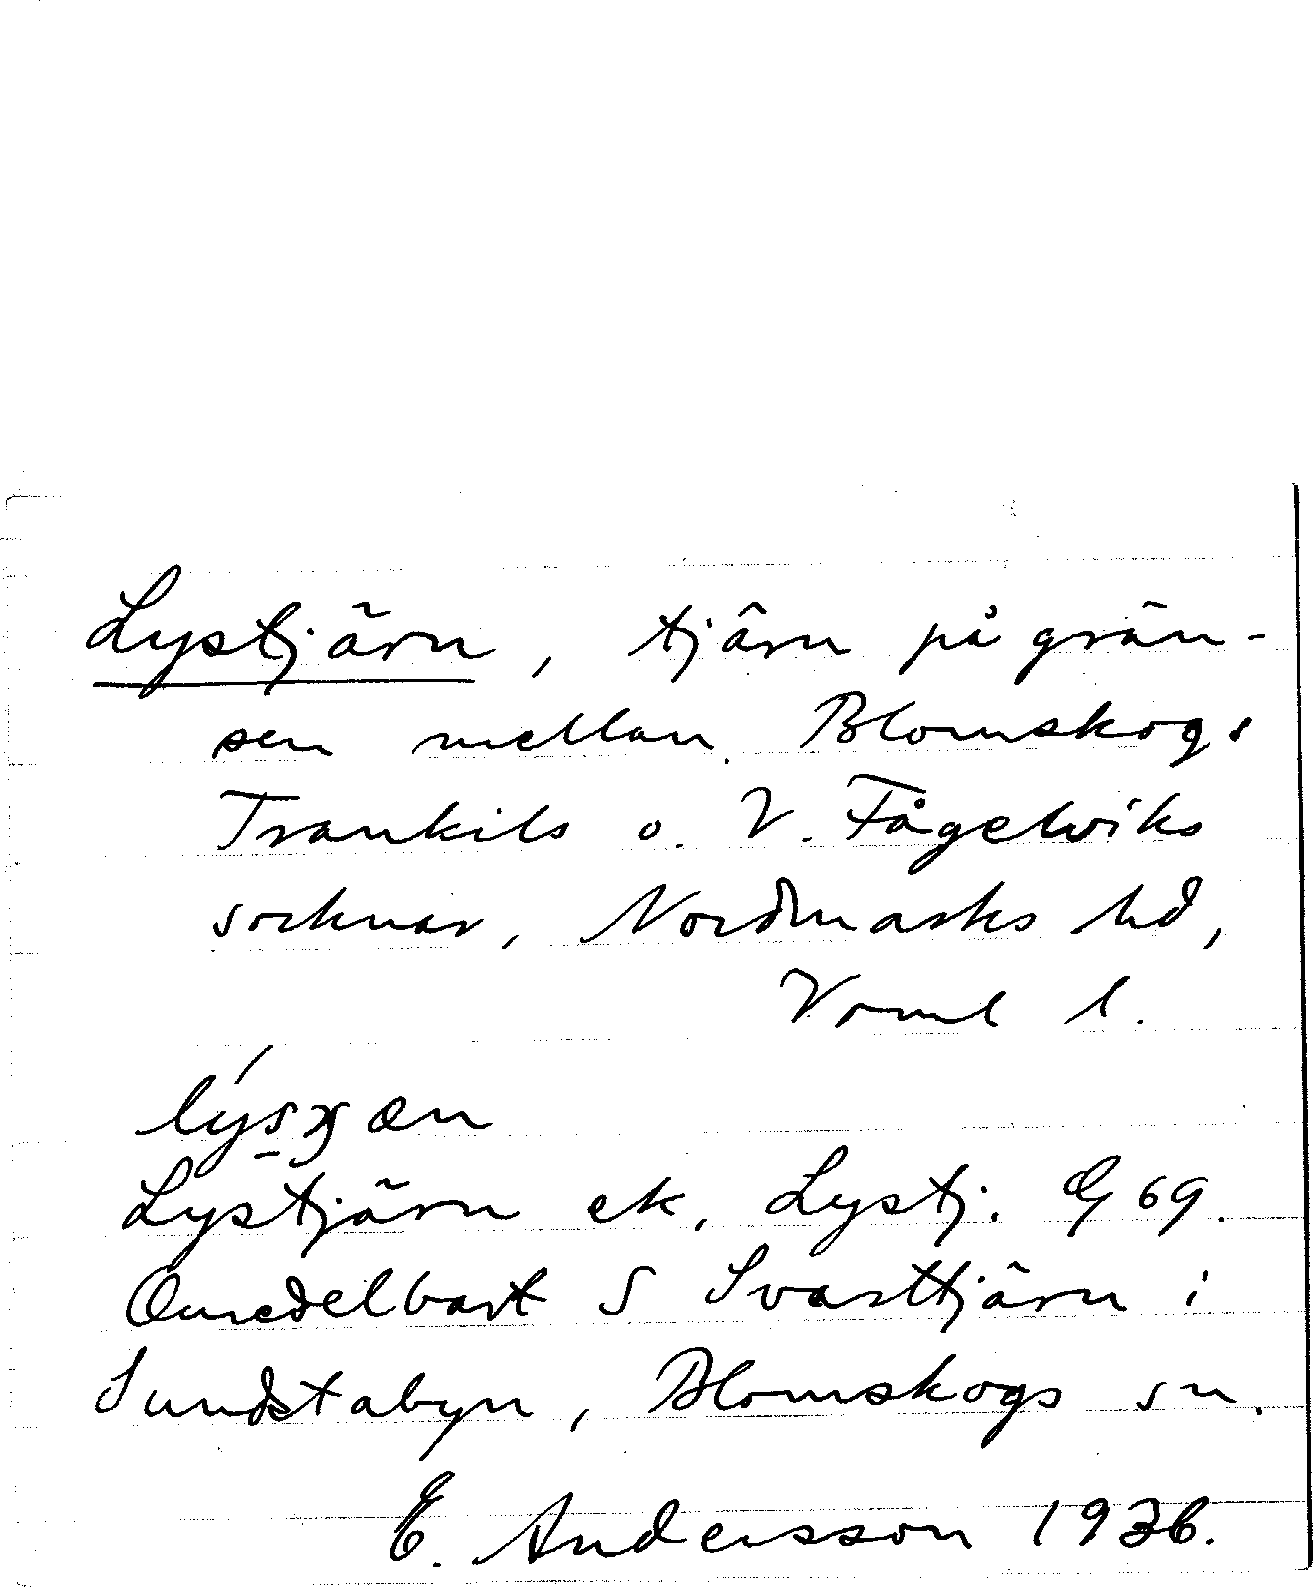 Lystjärn, tjärn på grän-
sen mellan Blomskogs
Trankils o. V. Fågelviks
socknar, Nordmarks hd,
Värml l.
Lystjärn ek, Lystj. G 69.
Omedelbart S Svarttjärn i
Sundstabyn, Blomskogs sn.
E. Andersson 1936.